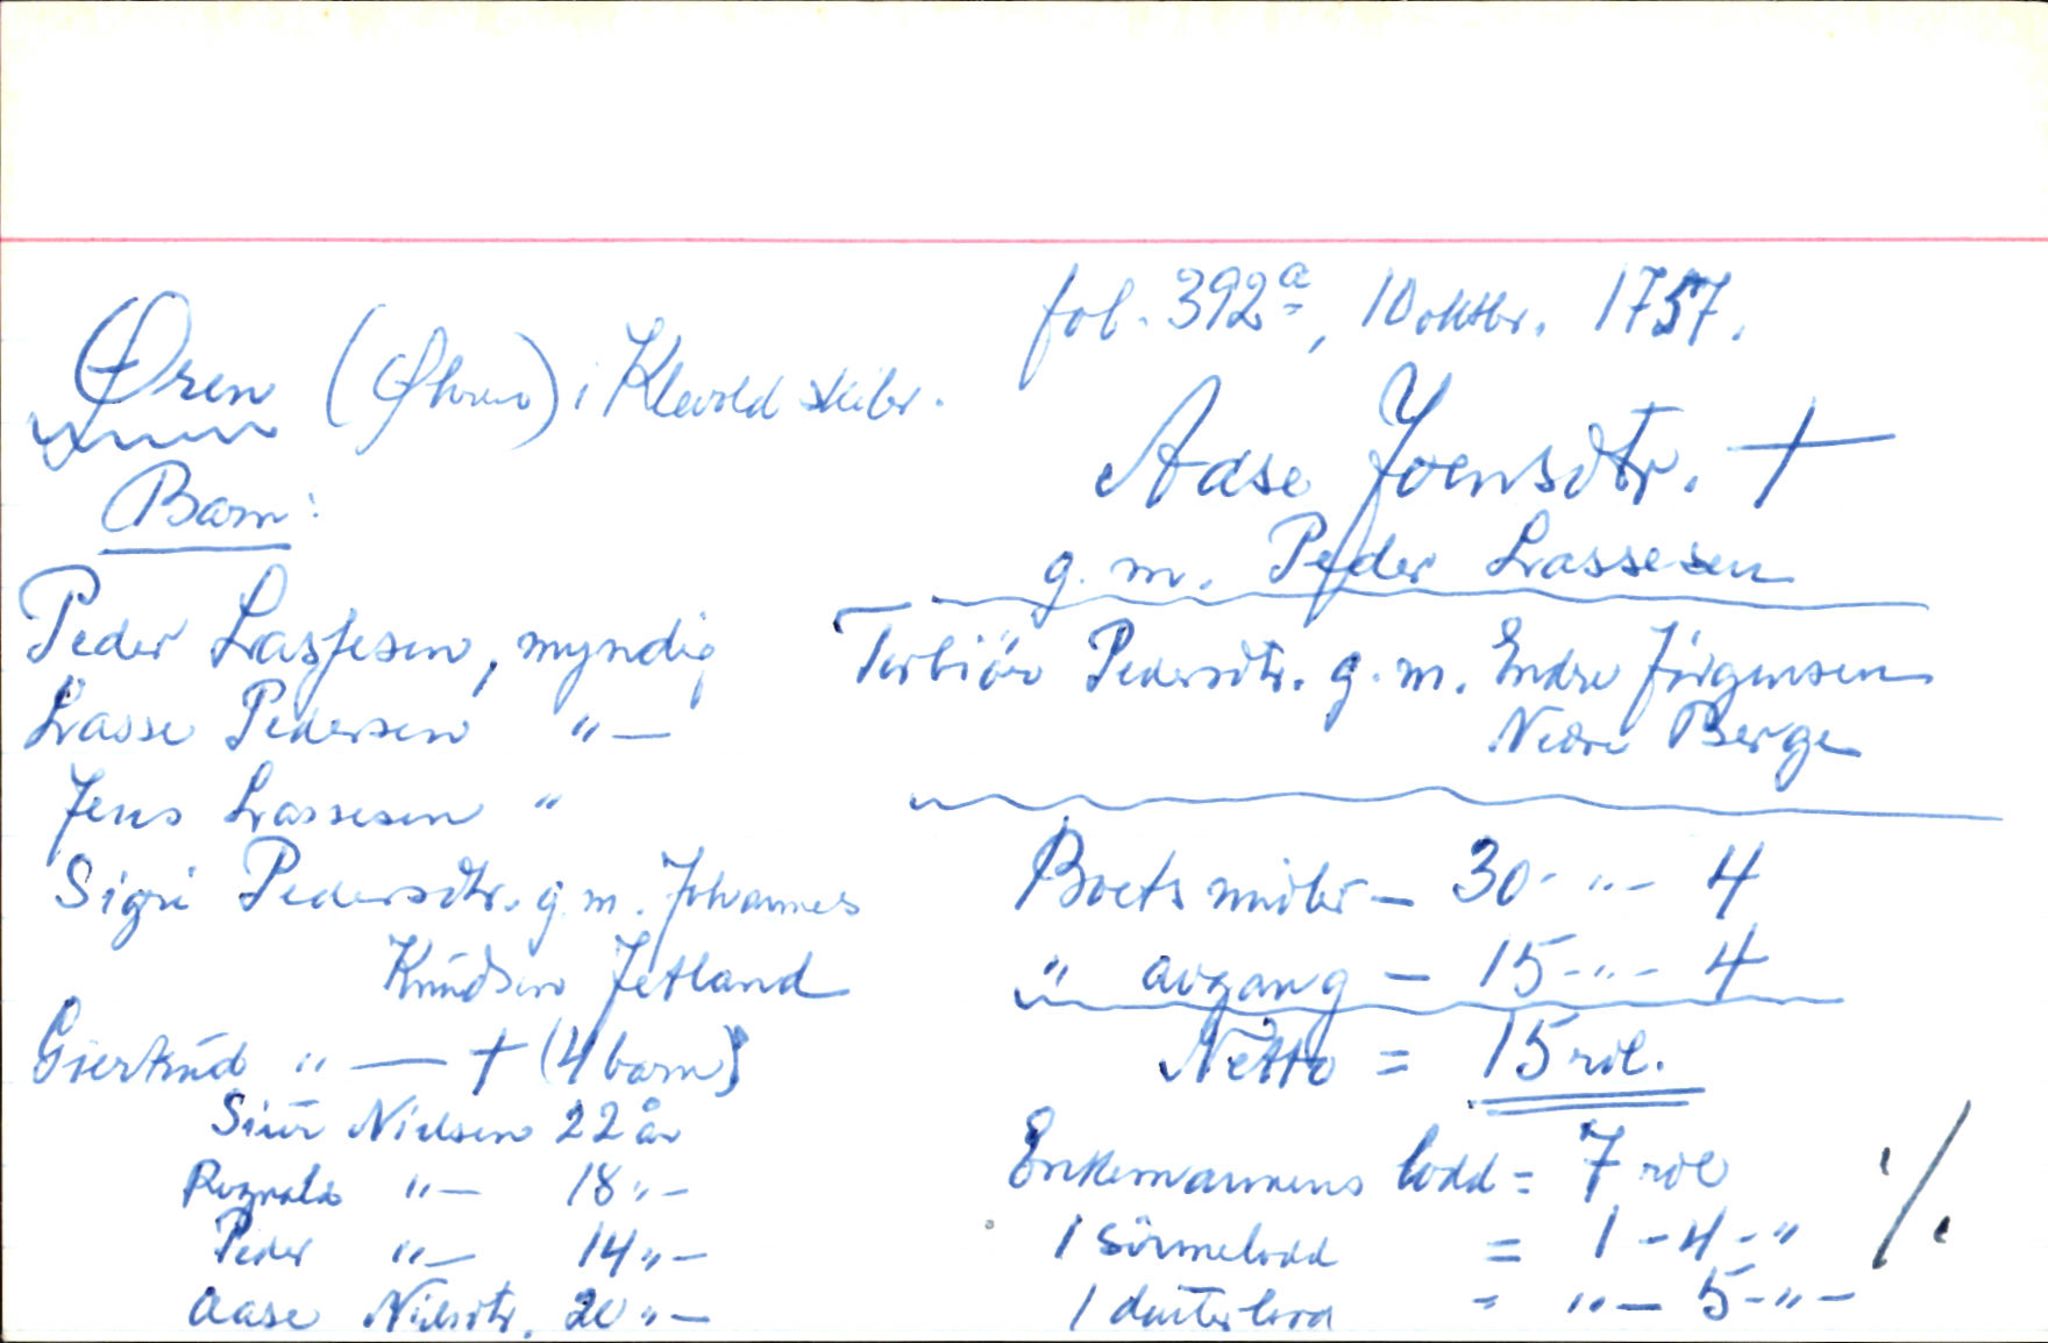 fol. 392a, 10 oktbr. 1757.
Øren (Øhren) i Klevold skibr.
Aase Joensdtr. †
g. m. Peder Lassesen
Barn:
Peder Lassesen, myndig
Lasse Pedersen "—
Jens Lassesen "
Sigri Pedersdtr. g. m. Johannes
Knudsen Jetland
Giertrud "— † (4 barn)
Siur Nielsen 22 år
Rognald "— 18 "—
Peder "— 14 "—
Aase Nielsdtr. 20 "—
Torbiør Pedersdtr. g. m. Endre Jørgensen
Nedre Berge
Boets midler — 30 - " - 4
" avgang — 15 - " - 4
Netto = 15 rdl.
Enkemannens lodd = 7 rdl
1 sønnelodd = 1 - 4 - "
1 datterlodd = " — 5 - " —
./.